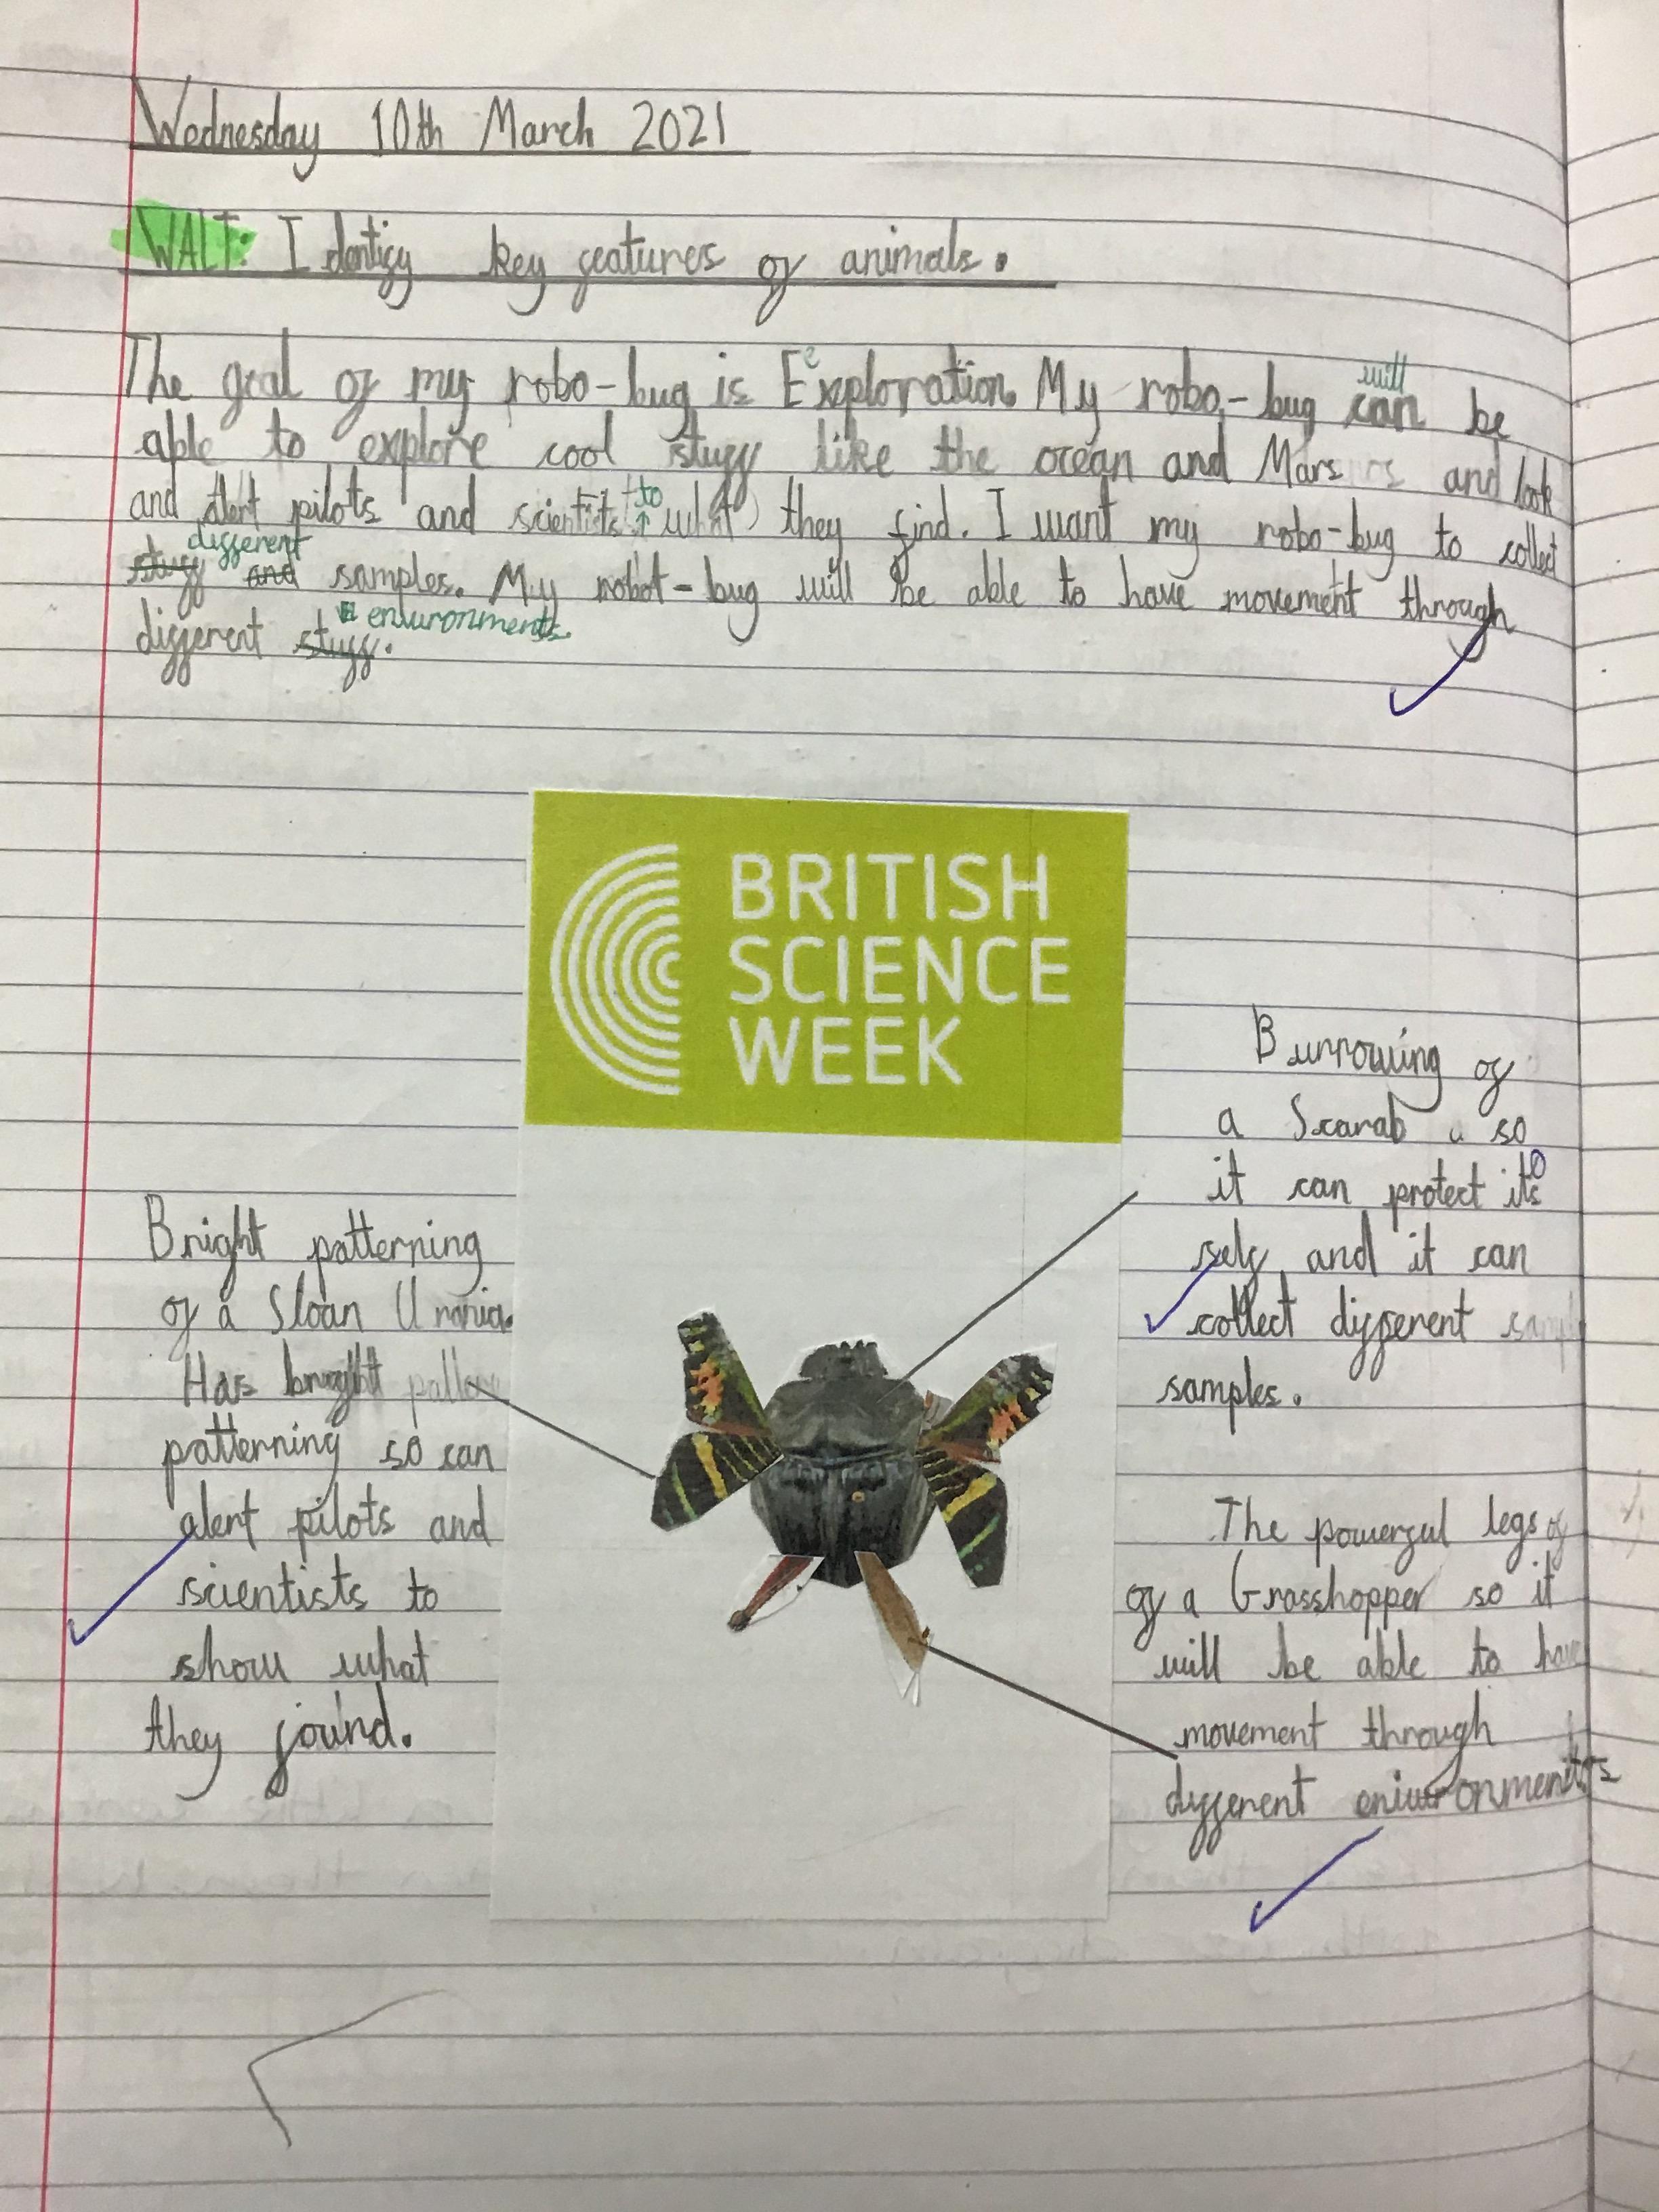 Wednesday 10th March 2021
WALT: Identify key features of animals.
The goal of my robo-bug is Eexploration. My robo-bug can will be
able to explore cool stuff like the ocean and Mars and look
and alert pilots and scientists to what they find. I want my robo-bug to collect
stuff and different samples. My robot-bug will be able to have movement through
different stuff. environments.
BRITISH
SCIENCE
WEEK
Bright patterning
of a Sloan Urania.
Has bright
patterning so can
alert pilots and
scientists to
show what
they found.
Burrowing of
a Scarab so
it can protect its
self and it can
collect different
samples.
The powerful legs of
of a Grasshopper so it
will be able to have
movement through
different enivironments